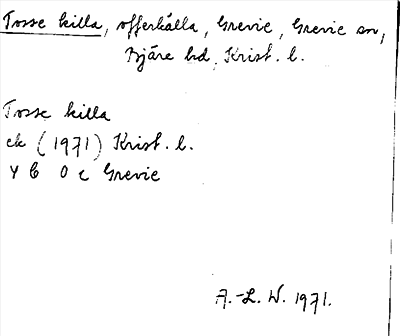 Tosse killa, offerkälla, Grevie, Grevie sn,
Bjäre hd, Krist. l.
Tosse killa
ek (1971) Krist. l.
Y 6 0 c Grevie
A.-L. W. 1971.